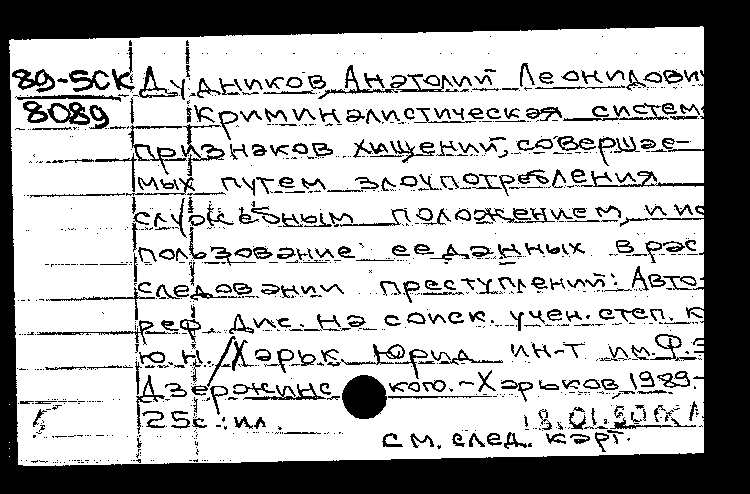 89-5СК Дудников Анатолий Леонидович
8089 Криминалистическая систем
признаков хищений, совершае-
мых путем злоупотребления
служебным положением, и ис
пользование ее данных в рас
следовании преступлений: Авто-
реф. дис. на соиск. учен. степ. к
ю. н. / Харьк. юрид. ин-т им. Ф.Э
Дзержинского. - Харьков, 1989.-
25с.: ил.
см. след. карт.